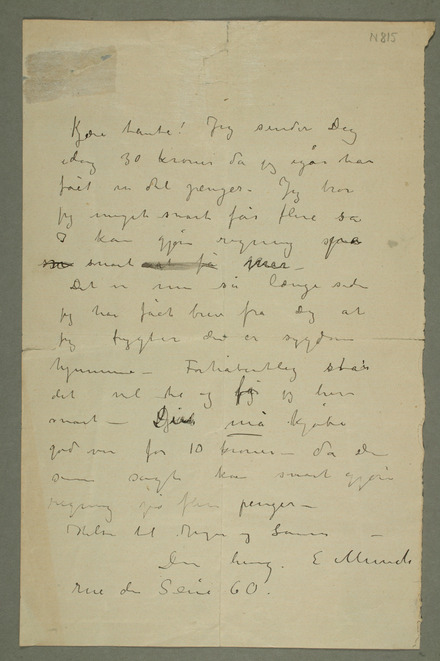 N 815
Kjære tante! Jeg sender Dig
idag 30 kroner da jeg igår har
fået en del penger. Jeg tror
jeg meget snart får flere så
D kan gjøre regning på
snart at få mer –
Det er nu så længe siden
jeg har fået brev fra Dig at
jeg frygter det er sygdom
hjemme – Forhåbentlig står
det vel til og får jeg brev
snart – Du må kjøbe
god vin for 10 kroner – da Du
som sagt kan snart gjøre
regning på flere penger –
Hilse til Inger og Laura –
Din heng. E Munch
rue de Seine 60.